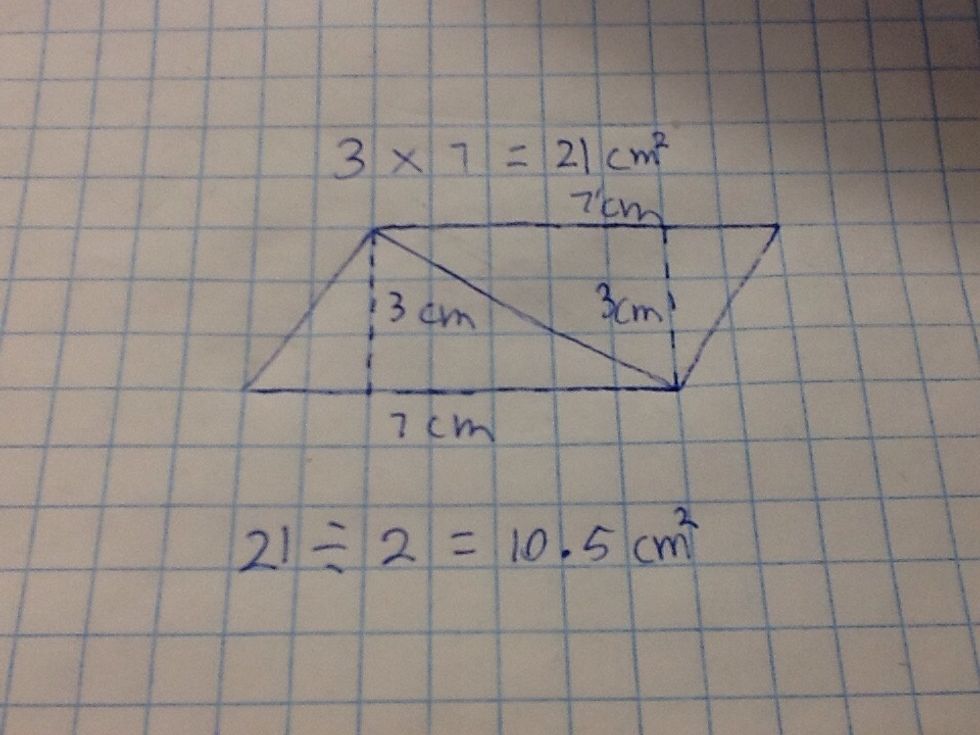 3 × 7 = 21 cm²
7cm
3 cm
3cm
7 cm
21 ÷ 2 = 10.5 cm²